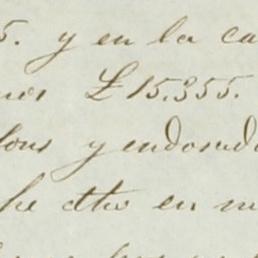 5. y en la ca
nos £ 15.355.
lons y endosado
he dho en m